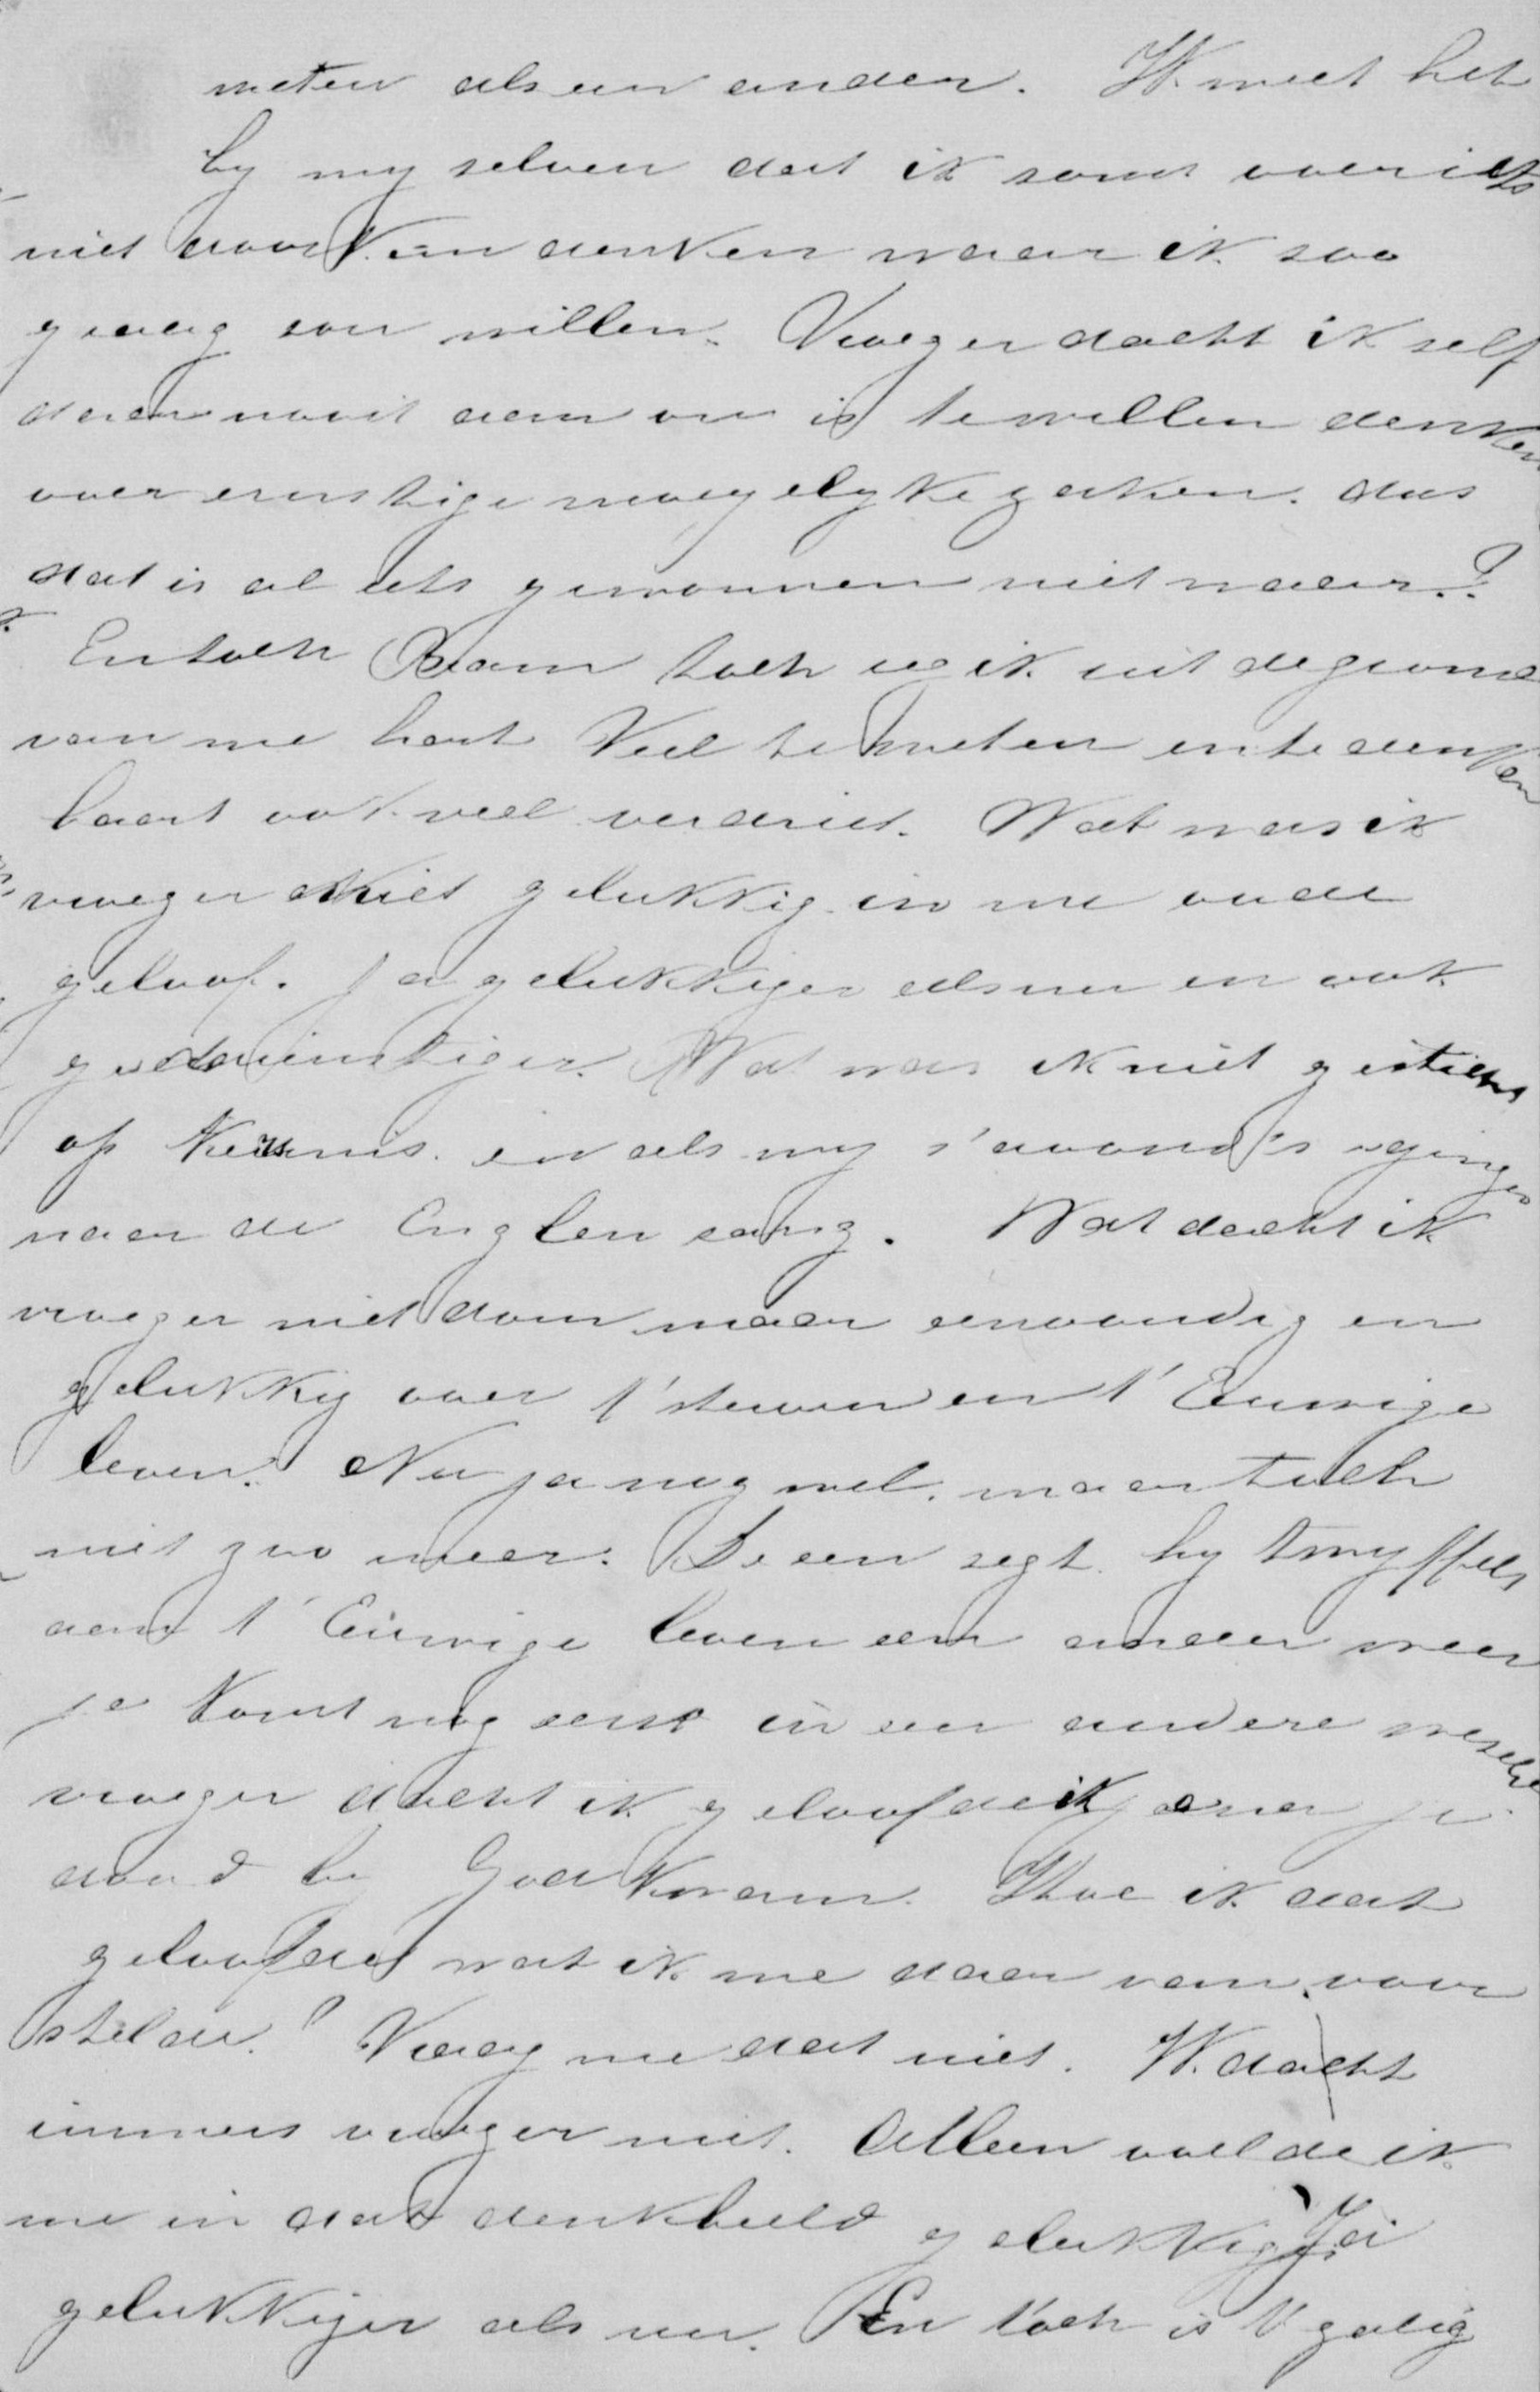 weten als een ander. Ik weet het
by my selven dat ik soms over iets
niet door kan denken waar ik soo
graag sou willen. Vroeger dacht ik self
daar nooit aan om is te willen denken
over ernstige moeyelyke zaken. dus
dat is al iets gewonnen niet waar.?
En toch Bram toch seg ik uit de grond
van me hart Veel te weten en te denken
baart ook veel verdriet. Wat was ik
vroeger niet gelukkig in me oude
geloof. Ja gelukkiger als nu en ook
godsdienstiger. Wat was ik niet gesticht
op Kersmis en als wy s'avond's gingen
naar de Englen sang. Wat dacht ik
vroeger niet dom maar eenvoudig en
gelukkig over t'sterven en t'Eeuwige
leven. Nu ja nog wel. maar toch
niet zoo meer. De een segt hy twyffelt
aan t'Eeuwige leven een ander weer
je komt nog eerst in een andere
vroeger dacht ik geloofde ik je
dood by God kwam. Hoe ik dat
geloofde wat ik me daar van voor
stelde? Vraag me dat niet. Ik dacht
immers vroeger niet. Alleen voelde ik
me in dat denkbeeld gelukkiger Ja
gelukkiger als nu. En toch is t zalig